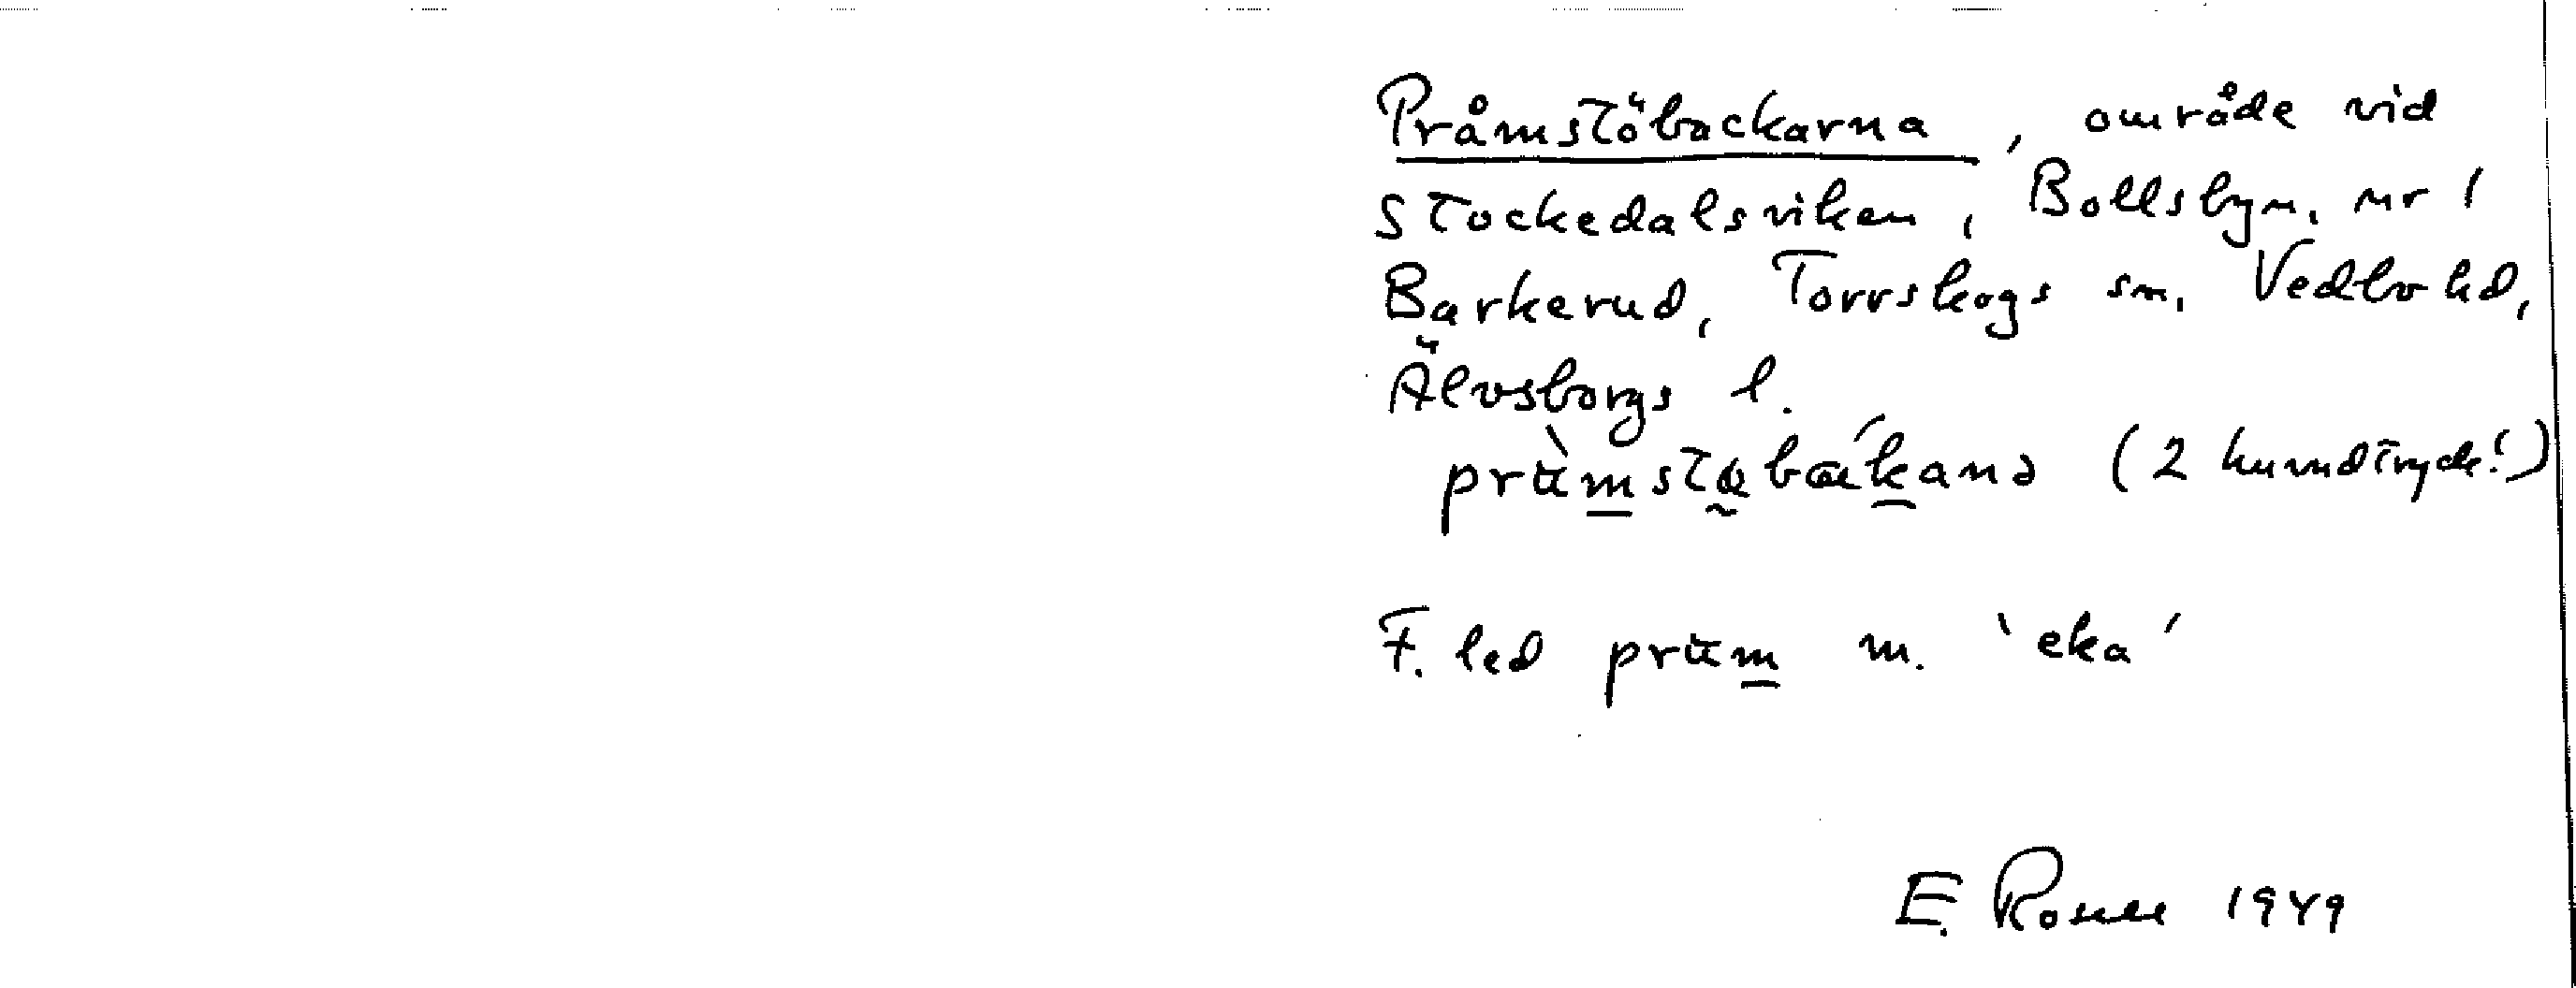 Pråmstöbackarna, område vid
Stockedalsviken, Bollsbyn, nr 1
Barkerud, Torrskogs sn, Vedbo hd,
Älvsborgs l.
(2 huvudtryck!)
F. led m. 'eka'
E. Rosell 1949